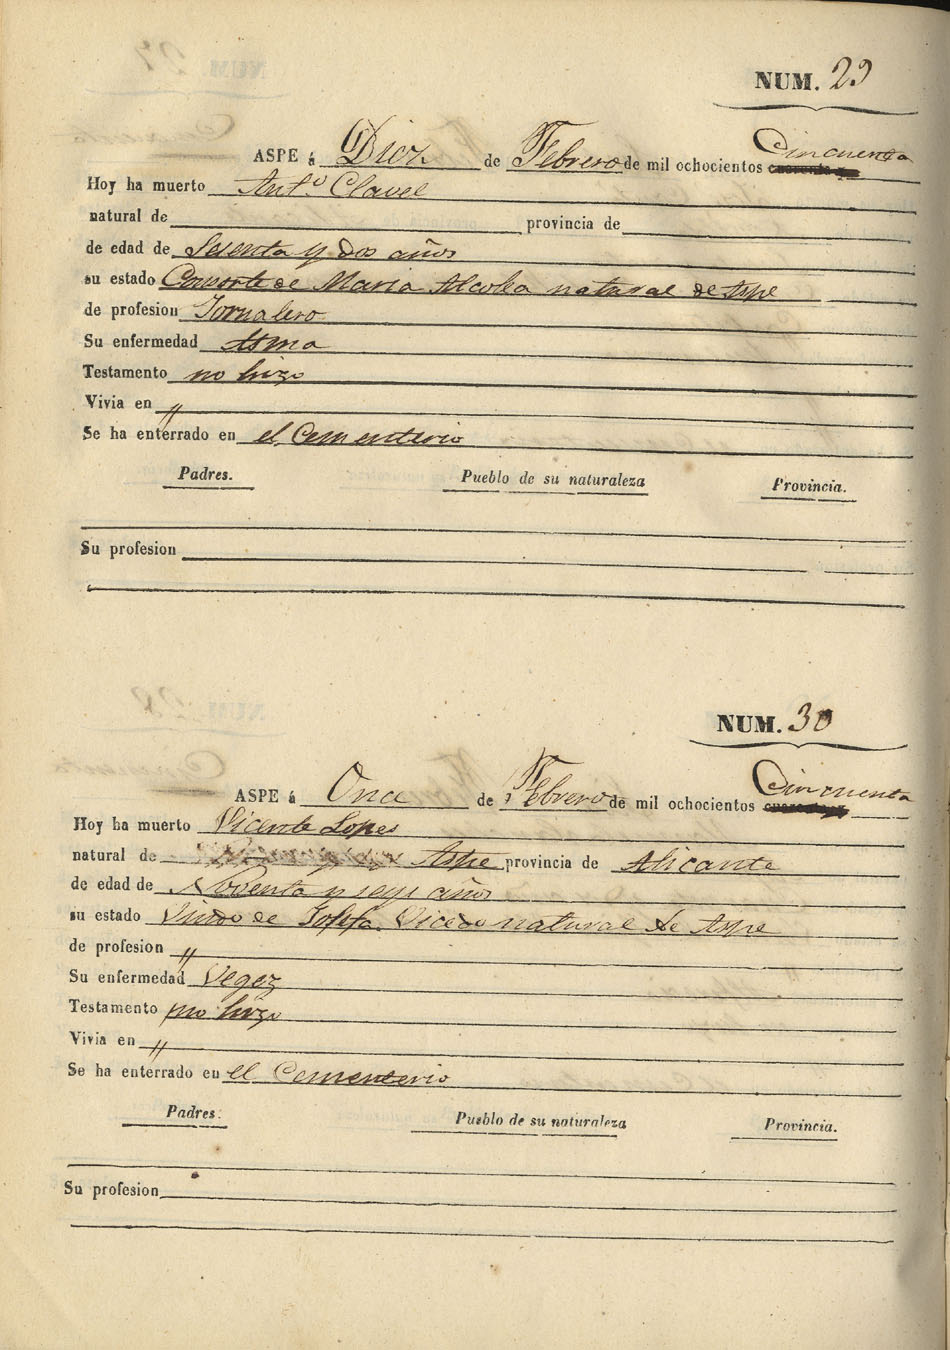 NUM. 29
ASPE á Diez de Febrero de mil ochocientos Cincuenta
Hoy ha muerto Antº Clavel
natural de provincia de
de edad de Sesenta y dos años
su estado Consorte de Maria Alcolea natural de Aspe
de profesion Jornalero
Su enfermedad Asma
Testamento no hizo
Vivia en "
Se ha enterrado en el Cementerio
Padres. Pueblo de su naturaleza Provincia.
Su profesion
NUM. 30
ASPE á Once de Febrero de mil ochocientos Cincuenta
Hoy ha muerto Vicente Lopes
natural de Aspe provincia de Alicante
de edad de Noventa y seys años
su estado Viudo de Josefa Vicedo natural de Aspe
de profesion "
Su enfermedad Vegez
Testamento no hizo
Vivia en "
Se ha enterrado en el Cementerio
Padres. Pueblo de su naturaleza Provincia.
Su profesion